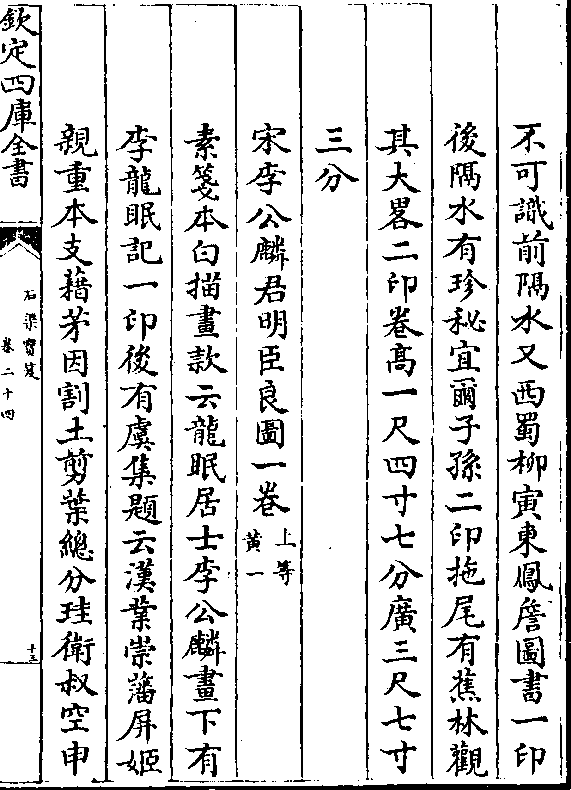 不可識前隔水又西蜀柳寅東鳳詹圖書一印
後隔水有珍秘宜爾子孫二印拖尾有蕉林觀
其大畧二印卷高一尺四寸七分廣三尺七寸
三分
宋李公麟君明臣良圖一卷上等黃一
素箋本白描畫款云龍眠居士李公麟畫下有
李龍眠記一印後有虞集題云漢業崇藩屏姬
親重本支藉茅因割土剪葉總分珪衛叔空申
欽定四庫全書
石渠寶笈
卷二十四
十三